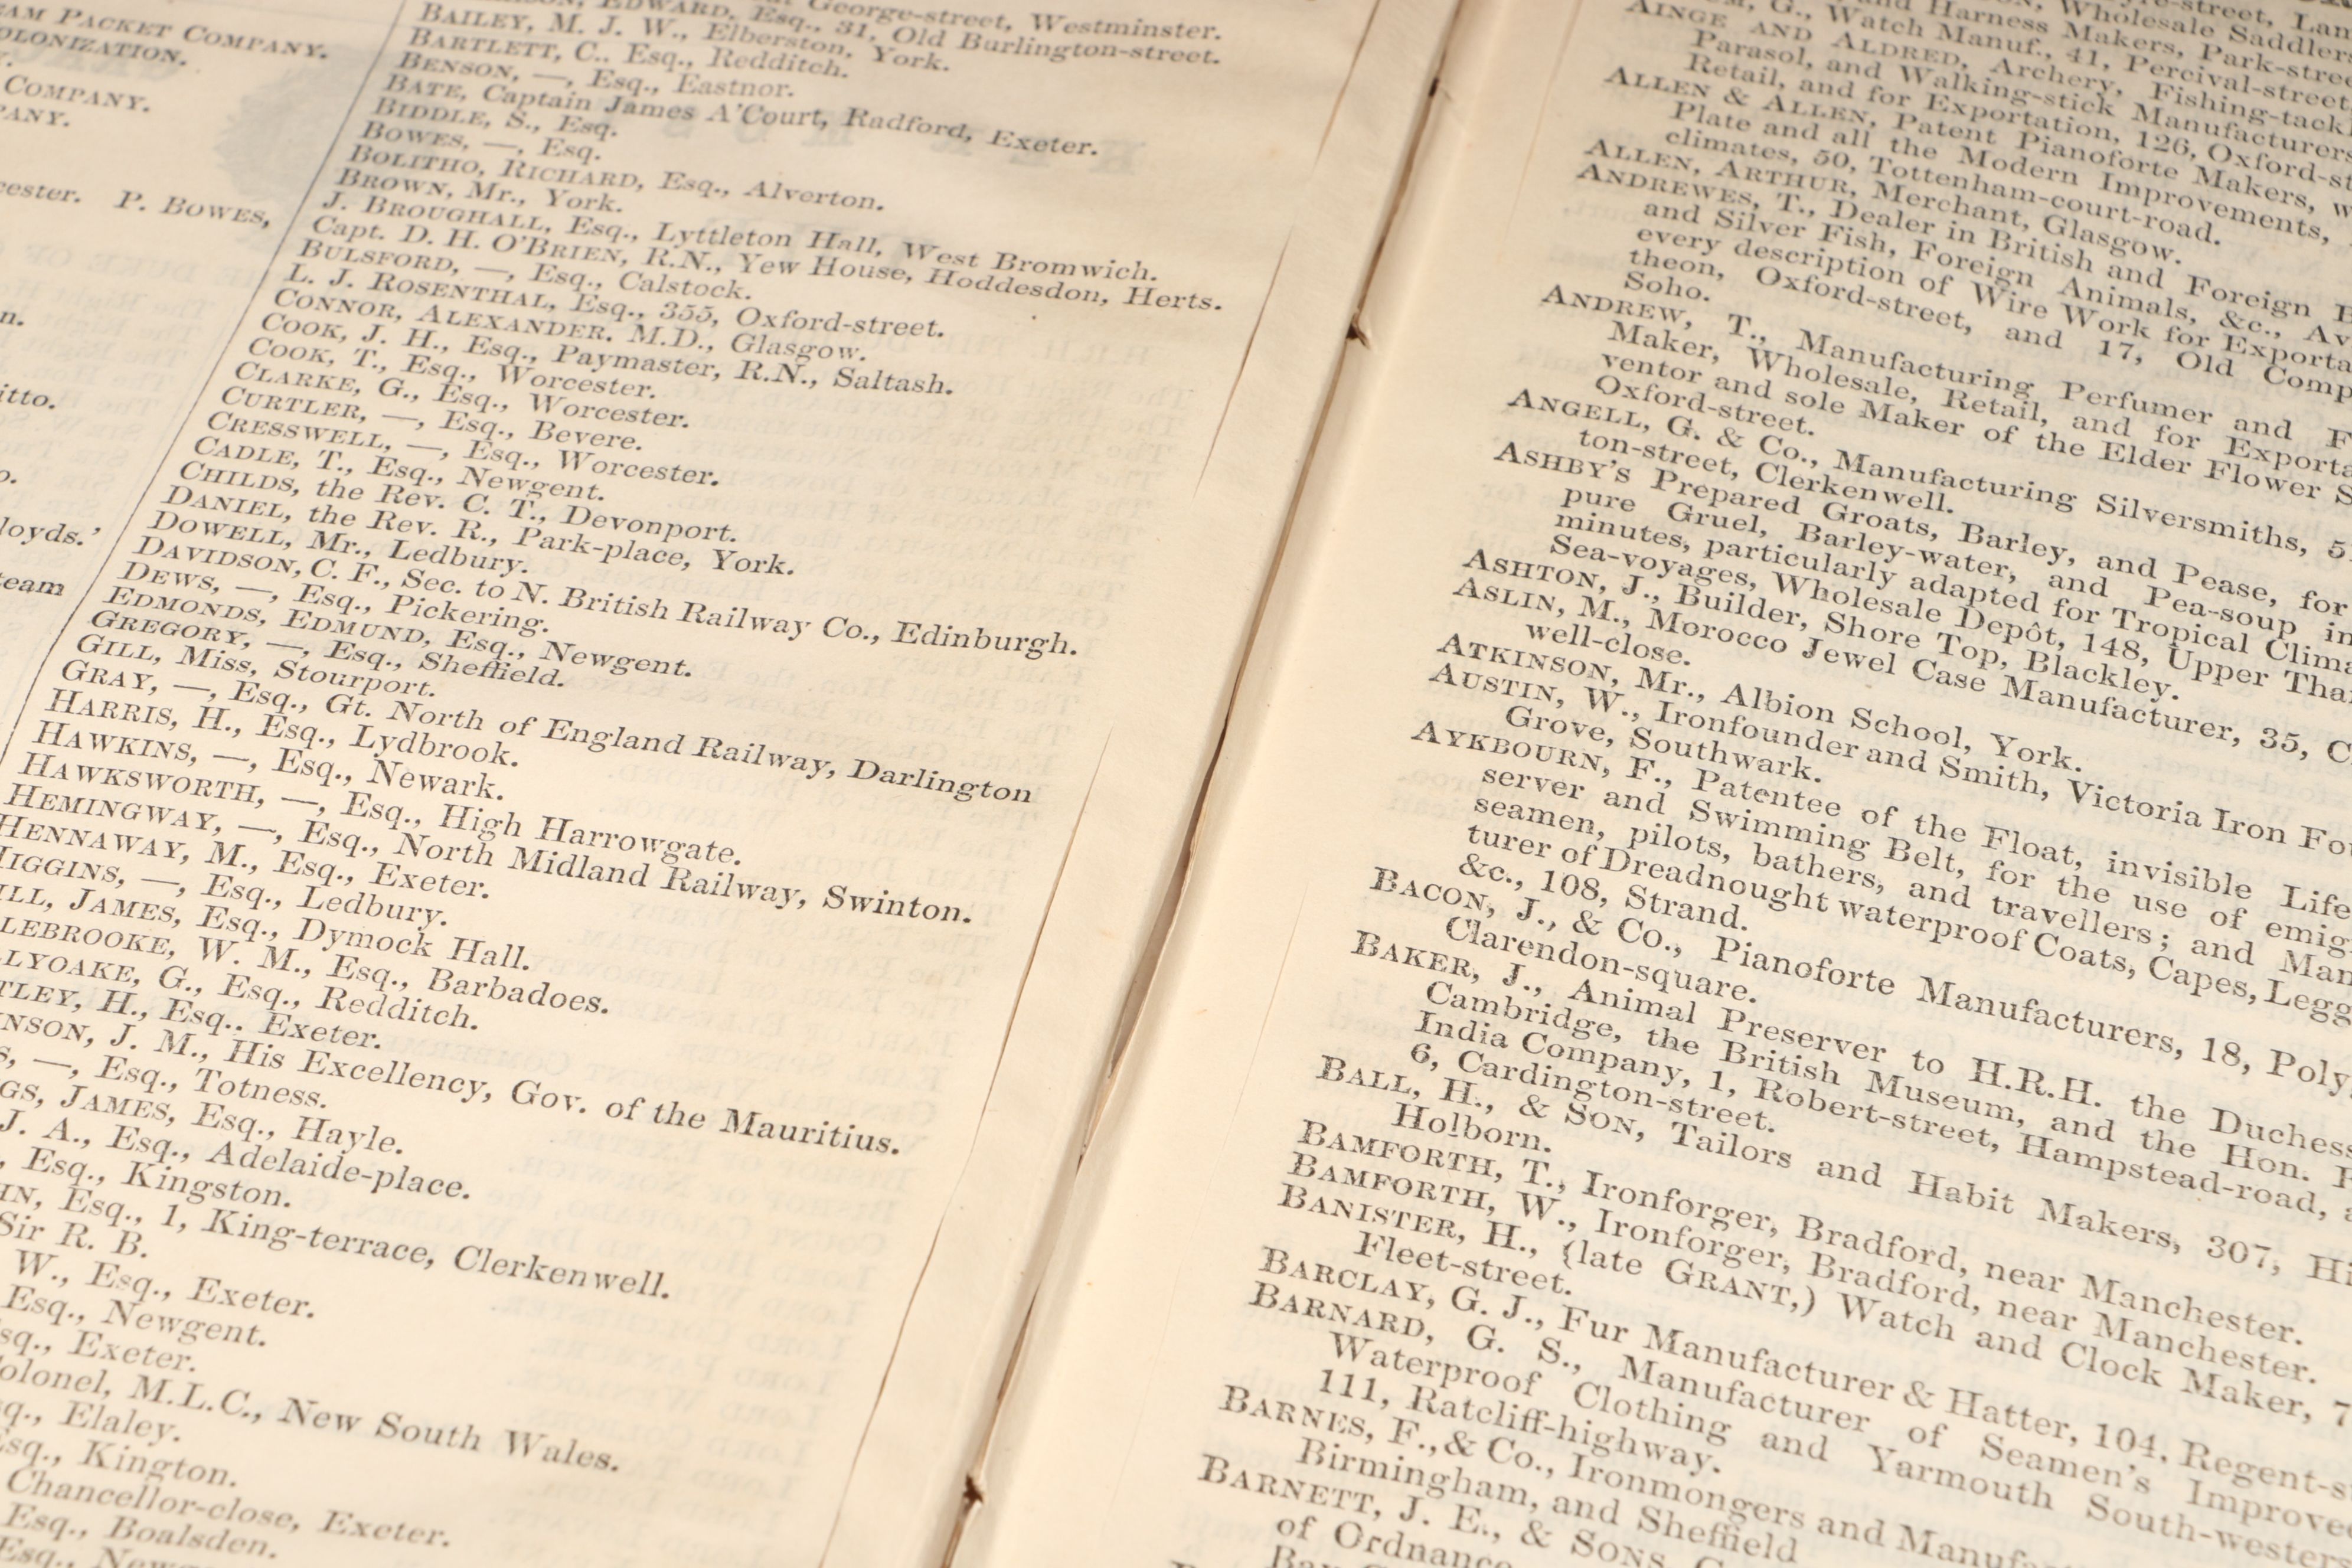 AM PACKET COMPANY.
OLONIZATION.
COMPANY.
PANY.
cester. P. BOWES,
itto.
loyds.'
team
EDWARD, Esq., 31, Old Burlington-street.
George-street, Westminster.
BAILEY, M. J. W., Elberston, York.
BARTLETT, C., Esq., Redditch.
BENSON, —, Esq., Eastnor.
BATE, Captain James A'Court, Radford, Exeter.
BIDDLE, S., Esq.
BOWES, —, Esq.
BOLITHO, RICHARD, Esq., Alverton.
BROWN, Mr., York.
J. BROUGHALL, Esq., Lyttleton Hall, West Bromwich.
Capt. D. H. O'BRIEN, R.N., Yew House, Hoddesdon, Herts.
BULSFORD, —, Esq., Calstock.
L. J. ROSENTHAL, Esq., 355, Oxford-street.
CONNOR, ALEXANDER, M.D., Glasgow.
COOK, J. H., Esq., Paymaster, R.N., Saltash.
COOK, T., Esq., Worcester.
CLARKE, G., Esq., Worcester.
CURTLER, —, Esq., Bevere.
CRESSWELL, —, Esq., Worcester.
CADLE, T., Esq., Newgent.
CHILDS, the Rev. C. T., Devonport.
DANIEL, the Rev. R., Park-place, York.
DOWELL, Mr., Ledbury.
DAVIDSON, C. F., Sec. to N. British Railway Co., Edinburgh.
DEWS, —, Esq., Pickering.
EDMONDS, EDMUND, Esq., Newgent.
GREGORY, —, Esq., Sheffield.
GILL, Miss, Stourport.
GRAY, —, Esq., Gt. North of England Railway, Darlington
HARRIS, H., Esq., Lydbrook.
HAWKINS, —, Esq., Newark.
HAWKSWORTH, —, Esq., High Harrowgate.
HEMINGWAY, —, Esq., North Midland Railway, Swinton.
HENNAWAY, M., Esq., Exeter.
HIGGINS, —, Esq., Ledbury.
ILL, JAMES, Esq., Dymock Hall.
LEBROOKE, W. M., Esq., Barbadoes.
LYOAKE, G., Esq., Redditch.
TLEY, H., Esq., Exeter.
NSON, J. M., His Excellency, Gov. of the Mauritius.
S, —, Esq., Totness.
GS, JAMES, Esq., Hayle.
J. A., Esq., Adelaide-place.
, Esq., Kingston.
IN, Esq., 1, King-terrace, Clerkenwell.
Sir R. B.
W., Esq., Exeter.
Esq., Newgent.
sq., Exeter.
olonel, M.L.C., New South Wales.
q., Elaley.
sq., Kington.
Chancellor-close, Exeter.
Esq., Boalsden.
Wholesale Saddlers
and Harness Makers, Park-stree
G., Watch Manuf., 41, Percival-street,
AINGE AND ALDRED, Archery, Fishing-tack
Parasol, and Walking-stick Manufacturers
Retail, and for Exportation, 126, Oxford-st
ALLEN & ALLEN, Patent Pianoforte Makers, w
Plate and all the Modern Improvements,
climates, 50, Tottenham-court-road.
ALLEN, ARTHUR, Merchant, Glasgow.
ANDREWES, T., Dealer in British and Foreign B
and Silver Fish, Foreign Animals, &c., Av
every description of Wire Work for Exporta
theon, Oxford-street, and 17, Old Comp
Soho.
ANDREW, T., Manufacturing Perfumer and F
Maker, Wholesale, Retail, and for Exporta
ventor and sole Maker of the Elder Flower S
Oxford-street.
ANGELL, G. & Co., Manufacturing Silversmiths, 5
ton-street, Clerkenwell.
ASHBY'S Prepared Groats, Barley, and Pease, for
pure Gruel, Barley-water, and Pea-soup in
minutes, particularly adapted for Tropical Clima
Sea-voyages, Wholesale Depôt, 148, Upper Tha
ASHTON, J., Builder, Shore Top, Blackley.
ASLIN, M., Morocco Jewel Case Manufacturer, 35, C
well-close.
ATKINSON, Mr., Albion School, York.
AUSTIN, W., Ironfounder and Smith, Victoria Iron Fou
Grove, Southwark.
AYKBOURN, F., Patentee of the Float, invisible Life
server and Swimming Belt, for the use of emig
seamen, pilots, bathers, and travellers; and Man
turer of Dreadnought waterproof Coats, Capes, Legg
&c., 108, Strand.
BACON, J., & Co., Pianoforte Manufacturers, 18, Poly
Clarendon-square.
BAKER, J., Animal Preserver to H.R.H. the Duchess
Cambridge, the British Museum, and the Hon. E
India Company, 1, Robert-street, Hampstead-road, a
6, Cardington-street.
BALL, H., & SON, Tailors and Habit Makers, 307, Hi
Holborn.
BAMFORTH, T., Ironforger, Bradford, near Manchester.
BAMFORTH, W., Ironforger, Bradford, near Manchester.
BANISTER, H., {late GRANT,) Watch and Clock Maker, 7
Fleet-street.
BARCLAY, G. J., Fur Manufacturer & Hatter, 104, Regent-s
BARNARD, G. S., Manufacturer of Seamen's Improve
Waterproof Clothing and Yarmouth South-wester
111, Ratcliff-highway.
BARNES, F., & Co., Ironmongers and Manufa
Birmingham, and Sheffield
BARNETT, J. E., & SONS,
of Ordnance